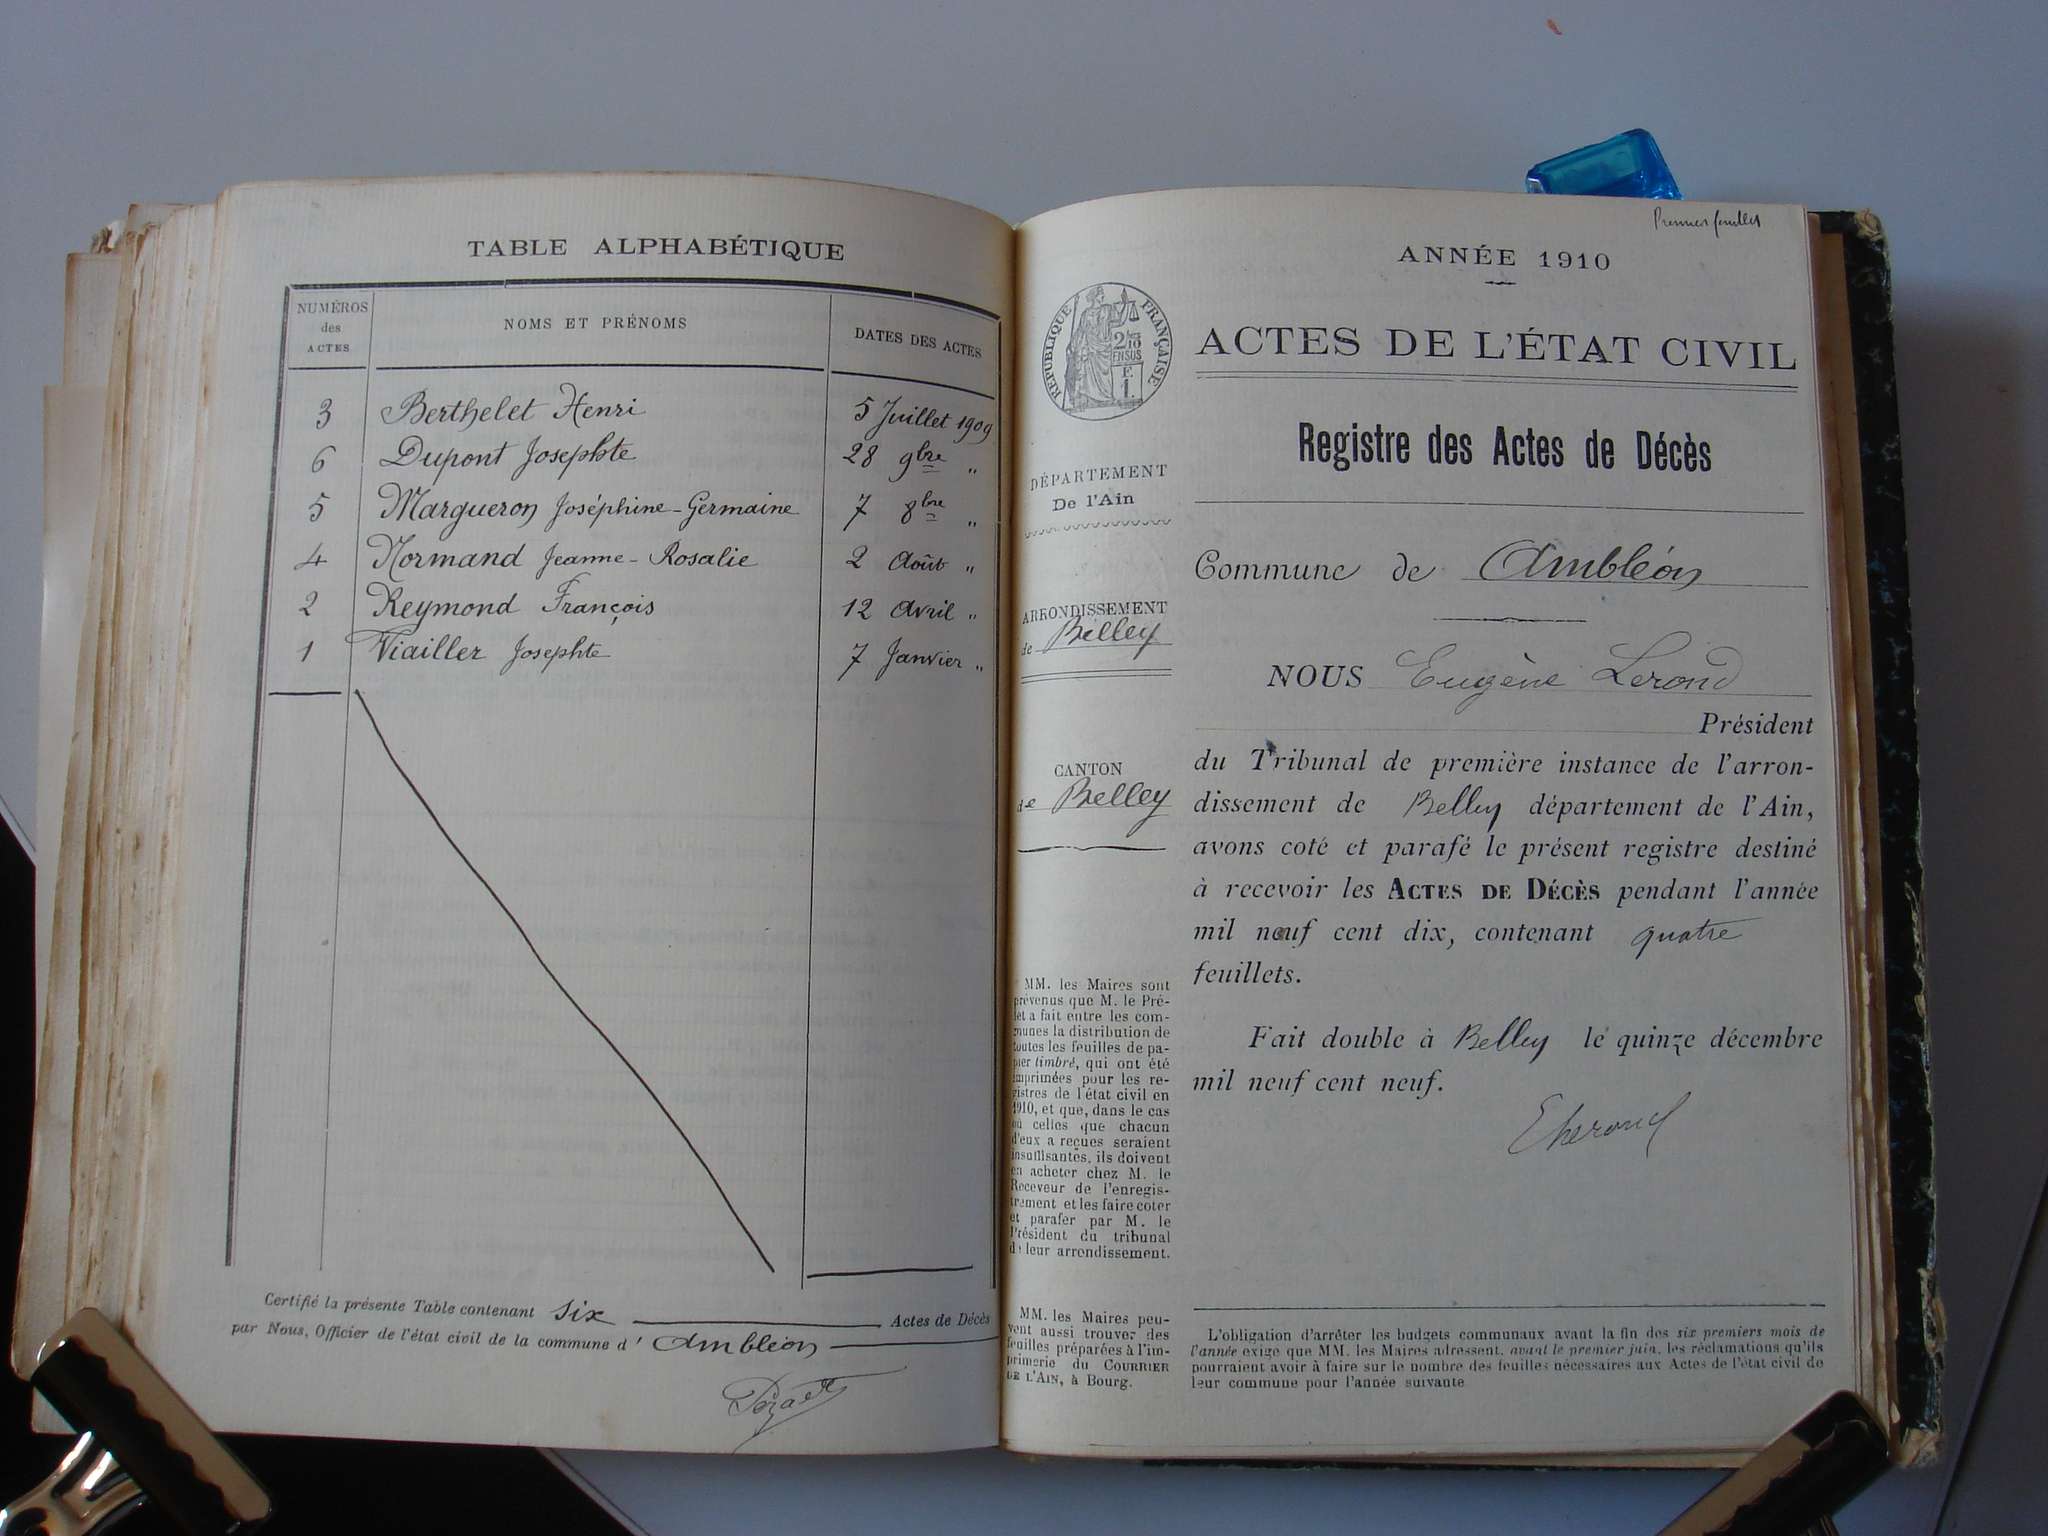 TABLE ALPHABÉTIQUE
NUMÉROS des ACTES NOMS ET PRÉNOMS DATES DES ACTES
3 Berthelet Henri 5 Juillet 1909
6 Dupont Josephte 28 9bre "
5 Margueron Joséphine-Germaine 7 8bre "
4 Normand Jeanne-Rosalie 2 Août "
2 Reymond François 12 Avril "
1 Viailler Josephte 7 Janvier "
Certifié la présente Table contenant six Actes de Décès
par Nous, Officier de l'état civil de la commune d' Ambléon
Premier feuillet
ANNÉE 1910
RÉPUBLIQUE FRANÇAISE
2/10 EN SUS
E.
1.
ACTES DE L'ÉTAT CIVIL
Registre des Actes de Décès
DÉPARTEMENT
De l'Ain
Commune de Ambléon
ARRONDISSEMENT
de Belley
NOUS Eugène Lerond
Président
CANTON
de Belley
du Tribunal de première instance de l'arron-
dissement de Belley département de l'Ain,
avons coté et parafé le présent registre destiné
à recevoir les ACTES DE DÉCÈS pendant l'année
mil neuf cent dix, contenant quatre
feuillets.
Fait double à Belley le quinze décembre
mil neuf cent neuf.
MM. les Maires sont
prévenus que M. le Pré-
fet a fait entre les com-
munes la distribution de
toutes les feuilles de pa-
pier timbré, qui ont été
imprimées pour les re-
gistres de l'état civil en
1910, et que, dans le cas
où celles que chacun
d'eux a reçues seraient
insuffisantes, ils doivent
en acheter chez M. le
Receveur de l'enregis-
trement et les faire coter
et parafer par M. le
Président du tribunal
de leur arrondissement.
MM. les Maires peu-
vent aussi trouver des
feuilles préparées à l'im-
primerie du COURRIER
DE L'AIN, à Bourg.
L'obligation d'arrêter les budgets communaux avant la fin des six premiers mois de
l'année exige que MM. les Maires adressent, avant le premier juin, les réclamations qu'ils
pourraient avoir à faire sur le nombre des feuilles nécessaires aux Actes de l'état civil de
leur commune pour l'année suivante